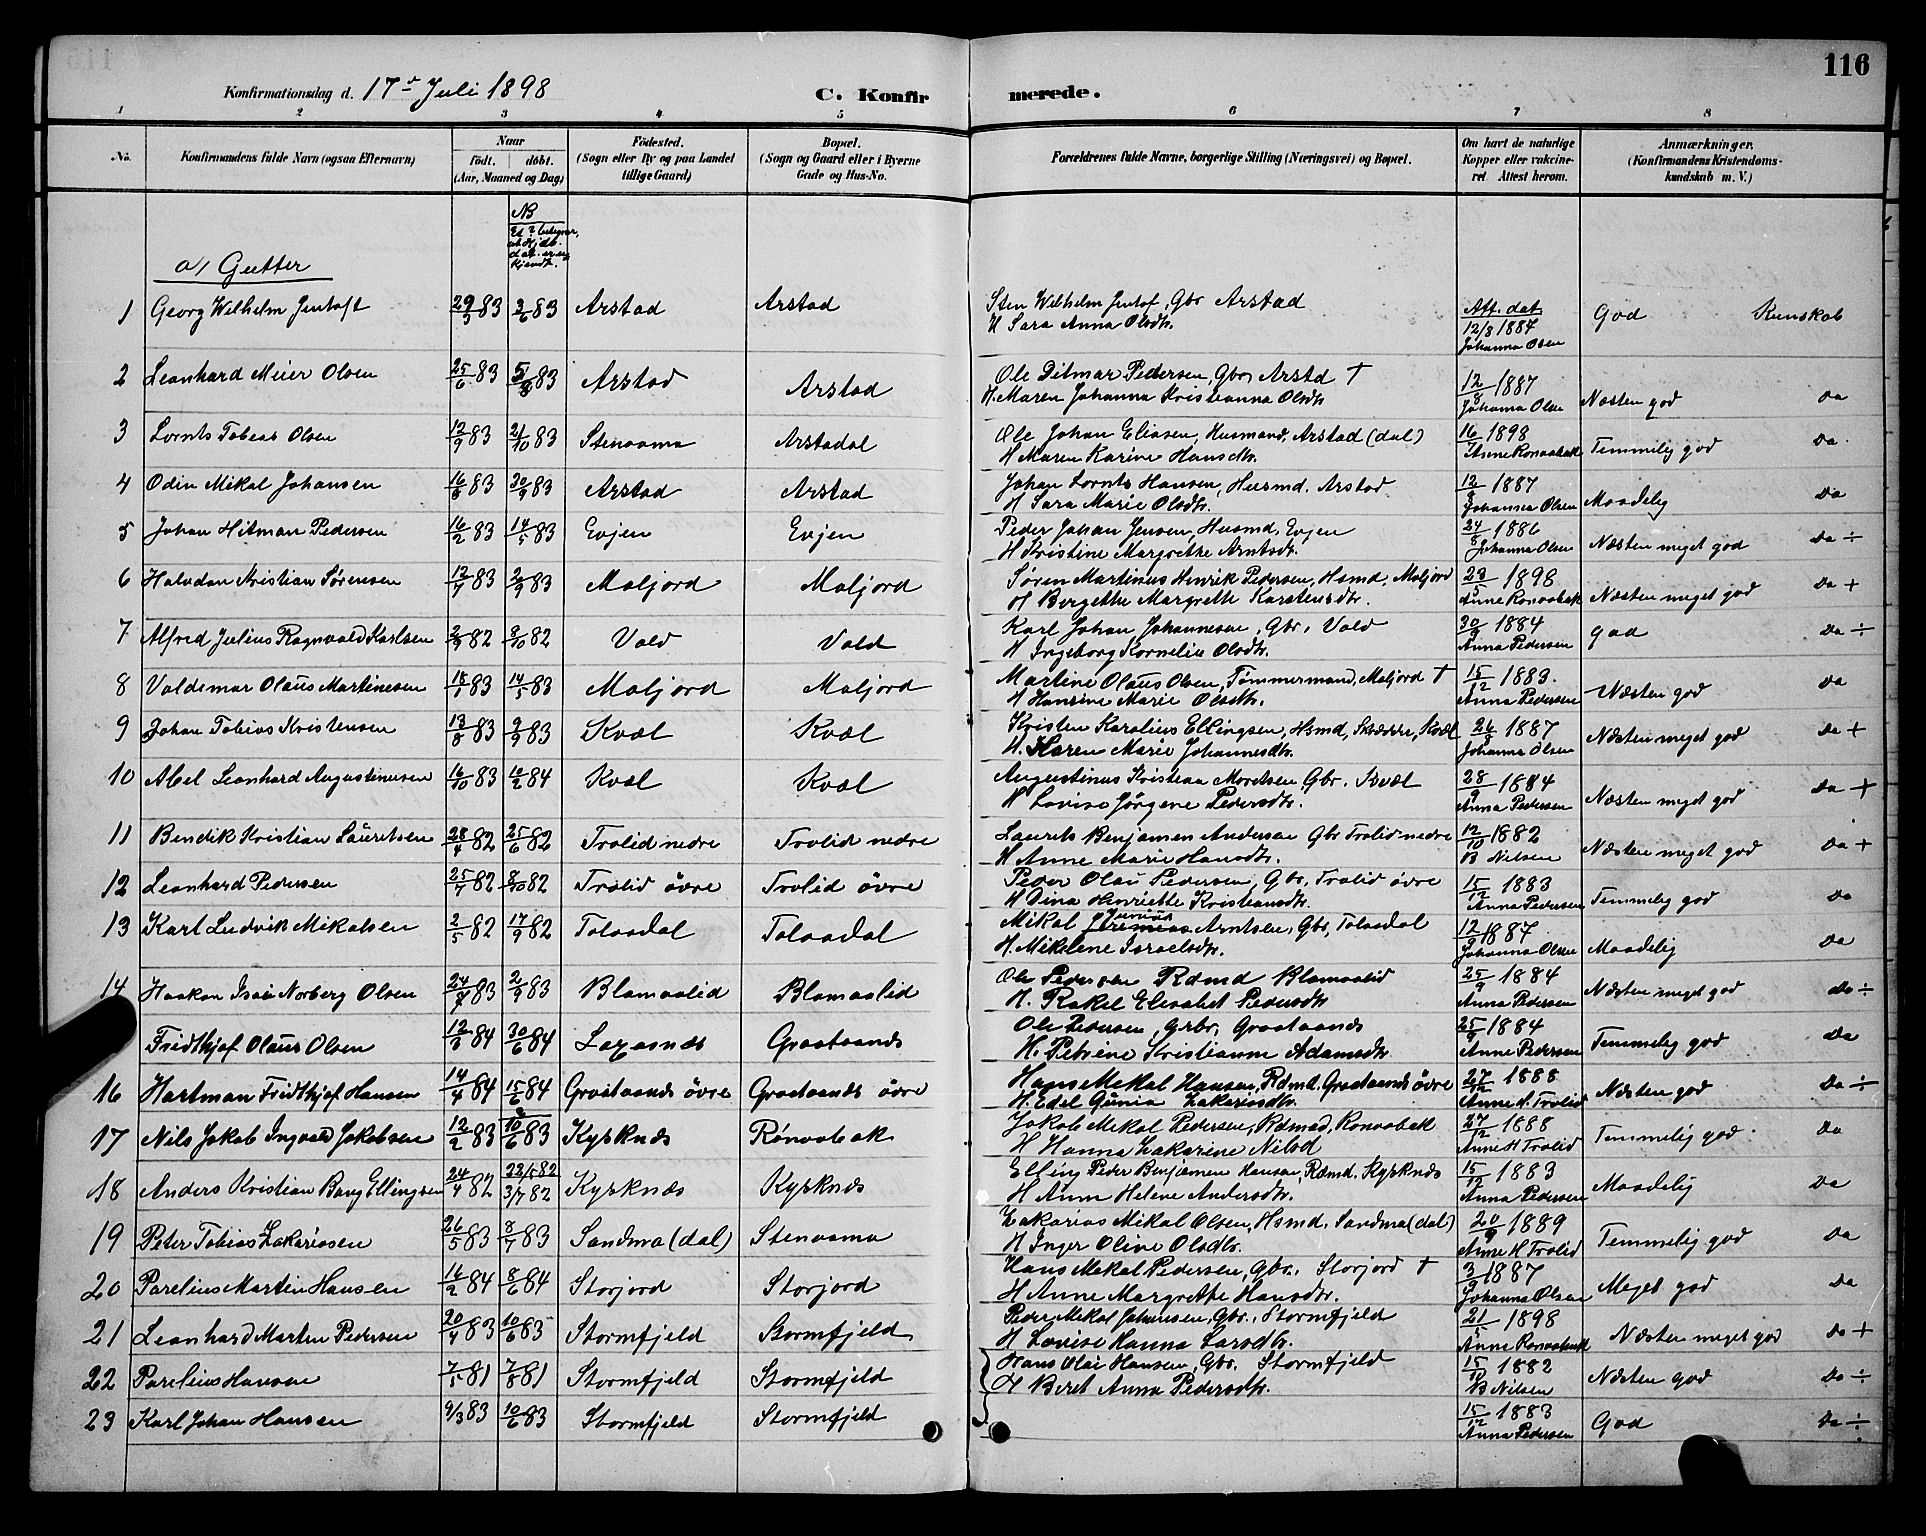 116
Konfirmationsdag d. 17de Juli 1898
C. Konfirmerede.
1 2 3 4 5 6 7 8
No.
Konfirmandens fulde Navn (ogsaa Efternavn)
Naar
födt. döbt.
(Aar, Maaned og Dag)
Födested.
(Sogn eller By og paa Landet
tillige Gaard)
Bopæl.
(Sogn og Gaard eller i Byerne
Gade og Hus-No.
Forældrenes fulde Navne, borgerlige Stilling (Næringsvei) og Bopæl.
Om havt de naturlige
Kopper eller vakcine-
ret Attest herom.
Anmærkninger.
(Konfirmandens Kristendoms-
kundskab m. V.)
NB
a) Gutter
1 Georg Wilhelm Jentoft 29/3 83 3/6 83 Arstad Arstad Sten Wilhelm Jentof, Gbr Arstad Att. dat. God Kunskab
H Sara Anna Olsdtr. 12/8 1887 Johanna Olsen
2 Leonhard Meier Olsen 25/6 83 5/8 83 Arstad Arstad Ole Ditmar Pedersen, Gbr, Arstd † 12/8 1887 Næsten god Da
H. Maren Johanna Kristianna Olsdtr Johanna Olsen
3 Lornts Tobias Olsen 12/9 83 21/10 83 Stenaama Arstadal Ole Johan Eliasen, Husmand, Arstad (dal) 16/ 1898 Temmelig god Da
H Maren Karine Hansdtr. Ronaabak
4 Odin Mikal Johansen 16/8 83 30/9 83 Arstad Arstad Johan Lornts Hansen, Husmd. Arstad 12/8 1887 Maadelig Da
H Sara Marie Olsdtr. Johanna Olsen
5 Johan Hitman Pedersen 16/2 83 14/5 83 Evjen Evjen Peder Johan Jensen, Husmd, Evjen 24/8 1886 Næsten meget god Da ÷
H Kristine Margrethe Arntsdr. Johanna Olsen
6 Halvdan Kristian Sørensen 12/7 83 2/9 83 Maljord Maljord Søren Martinus Henrik Pedersen, Hsmd, Maljord 23/5 1898 Næsten meget god Da +
H Bergethe Margrethe Karstensdtr. Anne Ronaabak
7 Alfred Julius Ragnvald Karlsen 2/9 82 8/10 82 Vald Vald Karl Johan Johannesen, Gbr, Vald 30/9 1884 God Da ÷
H Ingeborg Kornelia Olsdtr. Anna Pedersen
8 Valdemar Olaus Martinesen 18/1 83 14/5 83 Maljord Maljord Martine Olaus Olsen, Tømmermand, Maljord † 15/12 1883. Næsten god Da
H Hansine Marie Olsdtr. Anna Pedersen
9 Johan Tobias Kristensen 13/8 83 2/9 83 Kvæl Kvæl Kristen Karolius Ellingsen, Hsmd, Kvæl 26/8 1887 Næsten meget god Da +
H. Karen Marie Johannesdtr. Johanna Olsen
10 Abel Leonhard Augustinusen 16/10 83 10/2 84 Kvæl Kvæl Augustinus Kristian Moretsen, Gbr. Kvæl 28/9 1884 Næsten meget god Da +
H Lovise Jörgene Pedersdtr. Anna Pedersen
11 Bendik Kristian Lauretsen 28/4 82 25/6 82 Trolid nedre Trolid nedre Laurets Benjamen Andersen Gbr Trolid nedre 12/10 1882 Næsten meget god Da +
H Anne Marie Hansdtr. B Nilsen
12 Leonhard Pedersen 25/7 82 8/10 82 Trolid övre Trolid övre Peder Olai Pedersen, Gbr, Trolid övre 15/12 1883 Temmelig god Da
H Dina Henriette Kristiansdtr. Anna Pedersen
13 Karl Ludvik Mikalsen 2/5 82 17/9 82 Tolaadal Tolaadal Mikal Arntsen, Gbr, Tolaadal 12/ 1887 Maadelig Da
H. Mikeline Israelsdtr. Johanna Olsen
14 Haakon Isai Norberg Olsen 24/7 83 2/9 83 Blamaalid Blamaalid Ole Pedersen Rdmd Blamaalid 25/9 1884 Næsten meget god Da ÷
H. Rakel Elisabet Pedersdtr Anna Pedersen
Fridthjof Olaus Olsen 12/3 84 30/6 84 Laxesnæs Graataands Ole Pedersen, Grbr, Graataands 25/9 1884 Temmelig god Da
H. Petrine Kristianna Adamsdtr Anne Pedersen
16 Hartman Fridthjof Hansen 14/4 84 15/6 84 Graataands övre Graataands övre Hans Mekal Hansen, Rdmd. Graataands övre 27/12 1888 Næsten god Da ÷
H. Edel Gunia Zakariasdtr. Anne H. Trolid
17 Nils Jakob Ingvald Jakobsen 12/2 83 10/6 83 Kysknæs Rønaabak Jakob Mekal Pedersen, Rdmd, Ronaabak 27/12 1888 Temmelig god Da
H Hanna Zakarine Nilsd Anne H Trolid
18 Anders Kristian Bang Ellingsen 24/4 82 22/5 82 3/7 82 Kysknæs Kysknæs Elling Peder Benjamen Hansen, Rdmd. Kysknæs 15/12 1883 Maadelig Da
H Ann Helene Andersdtr. Anna Pedersen
19 Peter Tobias Zakariasen 26/5 83 8/7 83 Sandmo (dal) Stenaama Zakarias Mikal Olsen, Hsmd, Sandma (dal) 20/9 1889 Temmelig god Da
H Inger Oline Olsdtr. Anne H Trolid
20 Parelius Martin Hansen 16/2 84 8/6 84 Storjord Storjord Hans Mekal Pedersen, Gbr. Storjord † 3/9 1887 Meget god Da
H Anne Margrethe Hansdtr. Johanna Olsen
21 Leonhard Marten Pedersen 20/4 83 10/6 83 Stormfjeld Stormfjeld Peder Mekal Johansen, Gbr. Stormfjeld 21/5 1898 Næsten meget god Da +
H Lovise Hanna Larsdtr. Anna Ronaabak
22 Parelius Hansen 7/5 81 7/8 81 Stormfjeld Stormfjeld Hans Olai Hansen, Gbr. Stormfjeld 15/10 1882 Næsten god Da ÷
H Beret Anna Pedersdtr. B Nilsen
23 Karl Johan Hansen 9/3 83 10/6 83 Stormfjeld Stormfjeld 15/12 1883 God Da ÷
Anna Pedersen